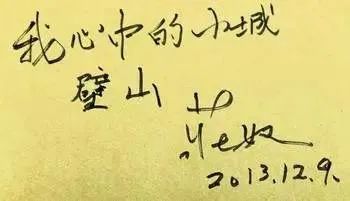 我心中的小城
壁山
莊奴
2013.12.9.